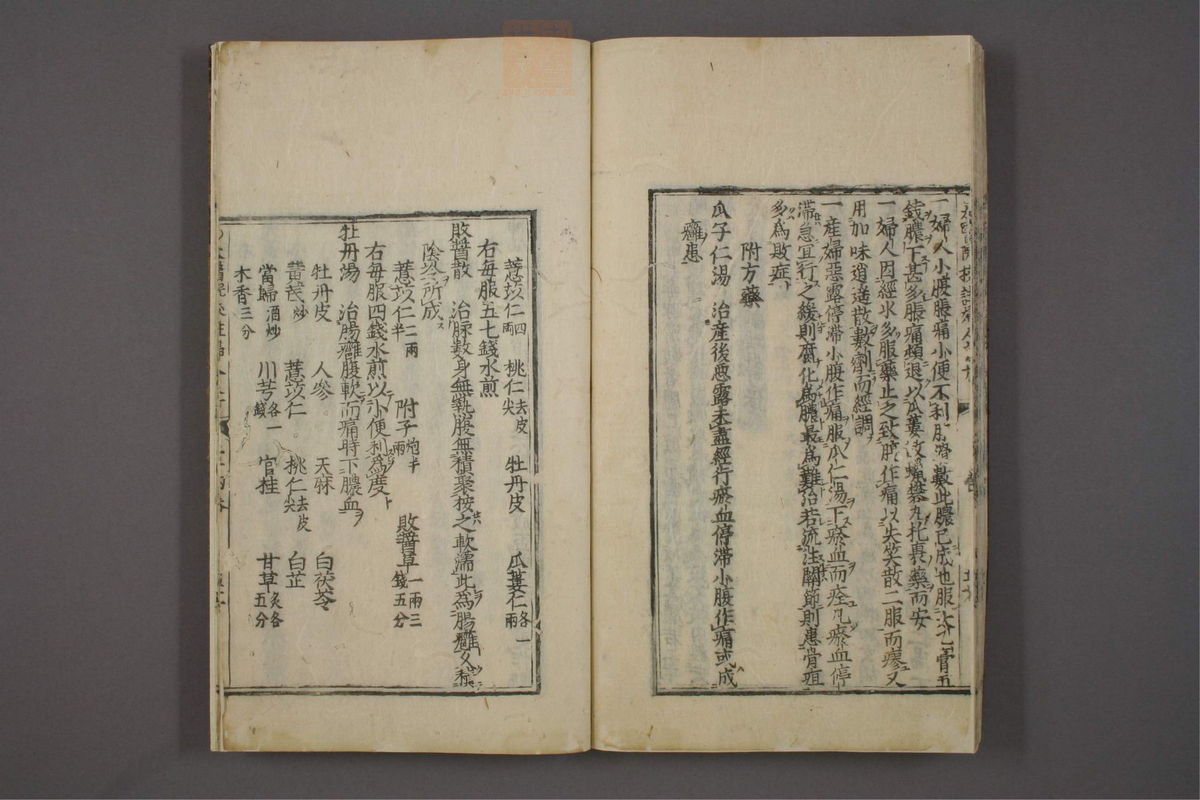 一婦人小腹脹痛小便不利脉滑數此膿已成也服太乙膏五
錢膿下甚多脹痛頓退以瓜蔞散蠟礬丸托裏藥而安
一婦人因經水多服藥止之致腹作痛以失笑散二服而瘳又
用加味逍遙散數劑而經調
一産婦惡露停滯小腹作痛服瓜仁湯下瘀血而痊凡瘀血停
滯急宜行之緩則腐化為膿最為難治若流注關節則患骨疽
多為敗症
附方藥
瓜子仁湯 治産後惡露未盡經行瘀血停滯小腹作痛或成
癰患
薏苡仁四兩 桃仁去皮尖 牡丹皮 瓜蔞仁各一兩
右每服五七錢水煎
敗醬散 治脉數身無熱腹無積聚按之軟濡此為腸癰久積
陰冷所成
薏苡仁二兩半 附子炮半兩 敗醬草一兩三錢五分
右每服四錢水煎以小便利為度
牡丹湯 治腸癰腹軟而痛時下膿血
牡丹皮 人參 天麻 白茯苓
黃茋炒 薏苡仁 桃仁去皮尖 白芷
當歸酒炒 川芎各一錢 官桂 甘草炙各五分
木香三分